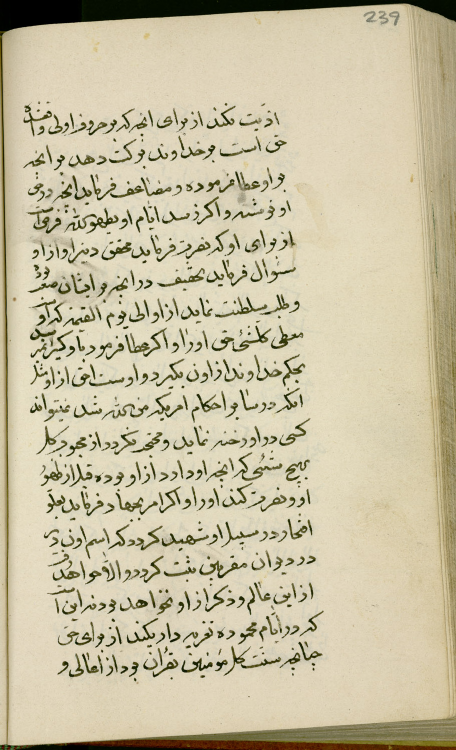 239
اذیت نکند از برای انچه که بر حروف اولی واقع شده
حق است بر خداوند برکت دهد بر انچه
بر او عطا فرموده و مضاعف فرماید انچه در حق
او نوشته و اگر رسد ایام او بظهور الله فرض است
از برای او که نصرت فرماید محقق دین او را و
سئوال فرماید تخفیف در انچه بر ایشان صعب
و طلب سلطنت نماید از او الی یوم القیمه که او است
معطی کلشئی حق او را و اگر عطا فرمود باو کسی نمیرسد
بحکم خداوند از اون بگیرد و اوست احق از او
انکه در سابر احکام امریکه من الله شد نمیتواند
کسی در او رخنه نماید و محتجب نگردد از محبوب کل
بهیچ شیئی که انچه او دارد از او بوده قبل از ظهور
او و نصرت کند او را و اگر امر بجهاد فرماید بعلو
افتخار در سبیل او شهید گردد که اسم اون
در دیوان مقربین ثبت گردد و الا محو خواهد شد
از این عالم و ذکر از او نخواهد بود نه این است
که در ایام محموده تعزیه داری کند از برای حق
چنانچه سنت کل مؤمنین بقران بود از اعالی و